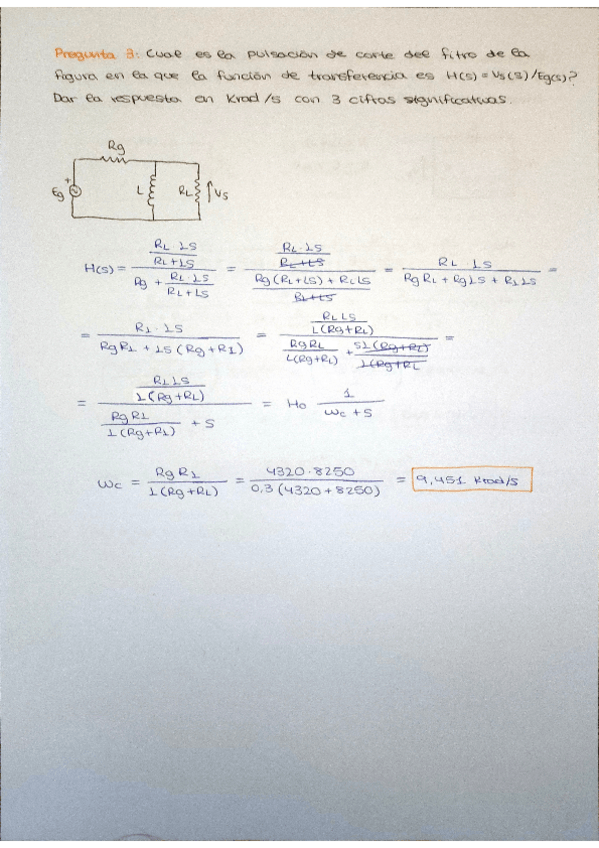 Pregunta 3: Cual es la pulsación de corte del fitro de la
figura en la que la función de transferencia es H(s) = Vs(s)/Eg(s)?
Dar la respuesta en Krad/s con 3 cifras significativas.
Rg
Eg + L RL Vs
H(s) = (RL · LS / (RL + LS)) / (Rg + RL · LS / (RL + LS)) = (RL · LS / (RL + LS)) / ((Rg (RL + LS) + RL LS) / (RL + LS)) = RL · LS / (Rg RL + Rg LS + RL LS) =
= RL · LS / (Rg RL + LS (Rg + RL)) = (RL LS / (L (Rg + RL))) / (Rg RL / (L (Rg + RL)) + SL (Rg + RL) / (L (Rg + RL)) =
= (RL LS / (L (Rg + RL))) / (Rg RL / (L (Rg + RL)) + S) = Ho 1 / (Wc + S)
Wc = Rg RL / (L (Rg + RL)) = 4320 · 8250 / (0,3 (4320 + 8250)) = 9,451 Krad/s